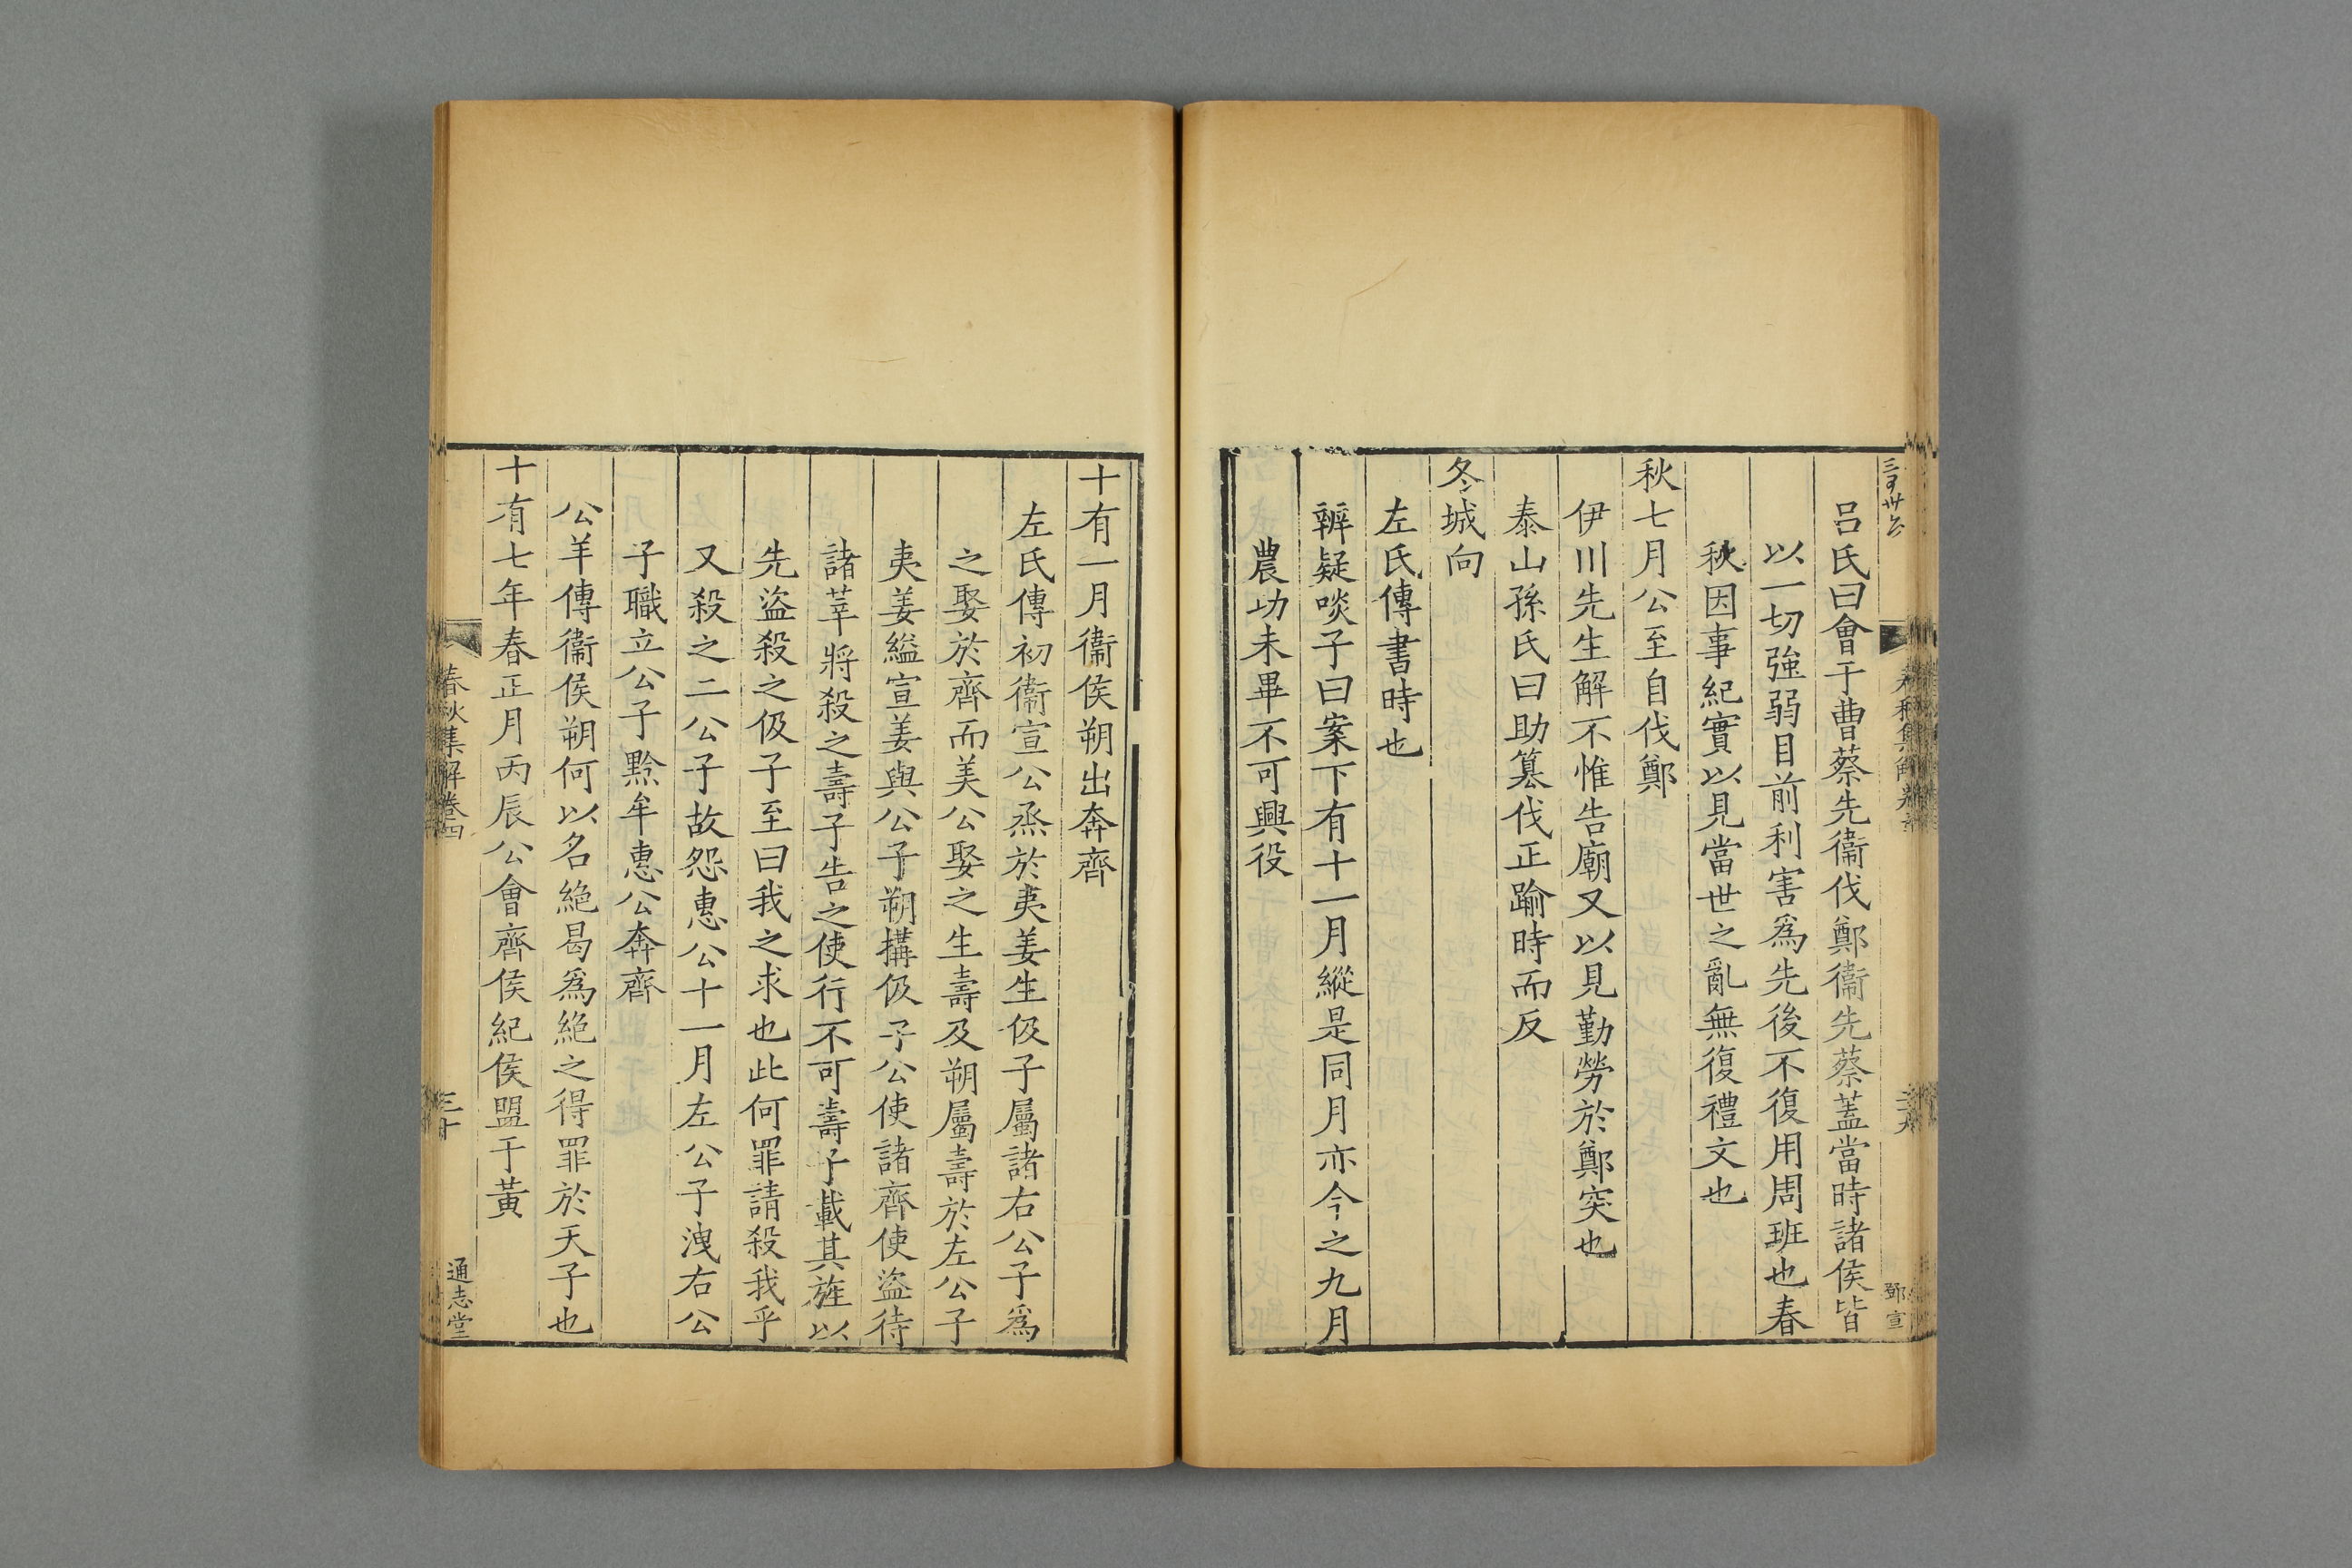 呂氏曰會于曹蔡先衞伐鄭衞先蔡蓋當時諸侯皆
以一切強弱目前利害爲先後不復用周班也春
秋因事紀實以見當世之亂無復禮文也
秋七月公至自伐鄭
伊川先生解不惟告廟又以見勤勞於鄭突也
泰山孫氏曰助篡伐正踰時而反
冬城向
左氏傳書時也
辨疑啖子曰案下有十一月縱是同月亦今之九月
農功未畢不可興役
鄧宣
十有一月衞侯朔出奔齊
左氏傳初衞宣公烝於夷姜生伋子屬諸右公子爲
之娶於齊而美公娶之生壽及朔屬壽於左公子
夷姜縊宣姜與公子朔搆伋子公使諸齊使盜待
諸莘將殺之壽子告之使行不可壽子載其旌以
先盜殺之伋子至曰我之求也此何罪請殺我乎
又殺之二公子故怨惠公十一月左公子洩右公
子職立公子黔牟惠公奔齊
公羊傳衞侯朔何以名絶曷爲絶之得罪於天子也
十有七年春正月丙辰公會齊侯紀侯盟于黃
春秋集解卷四
三十
通志堂